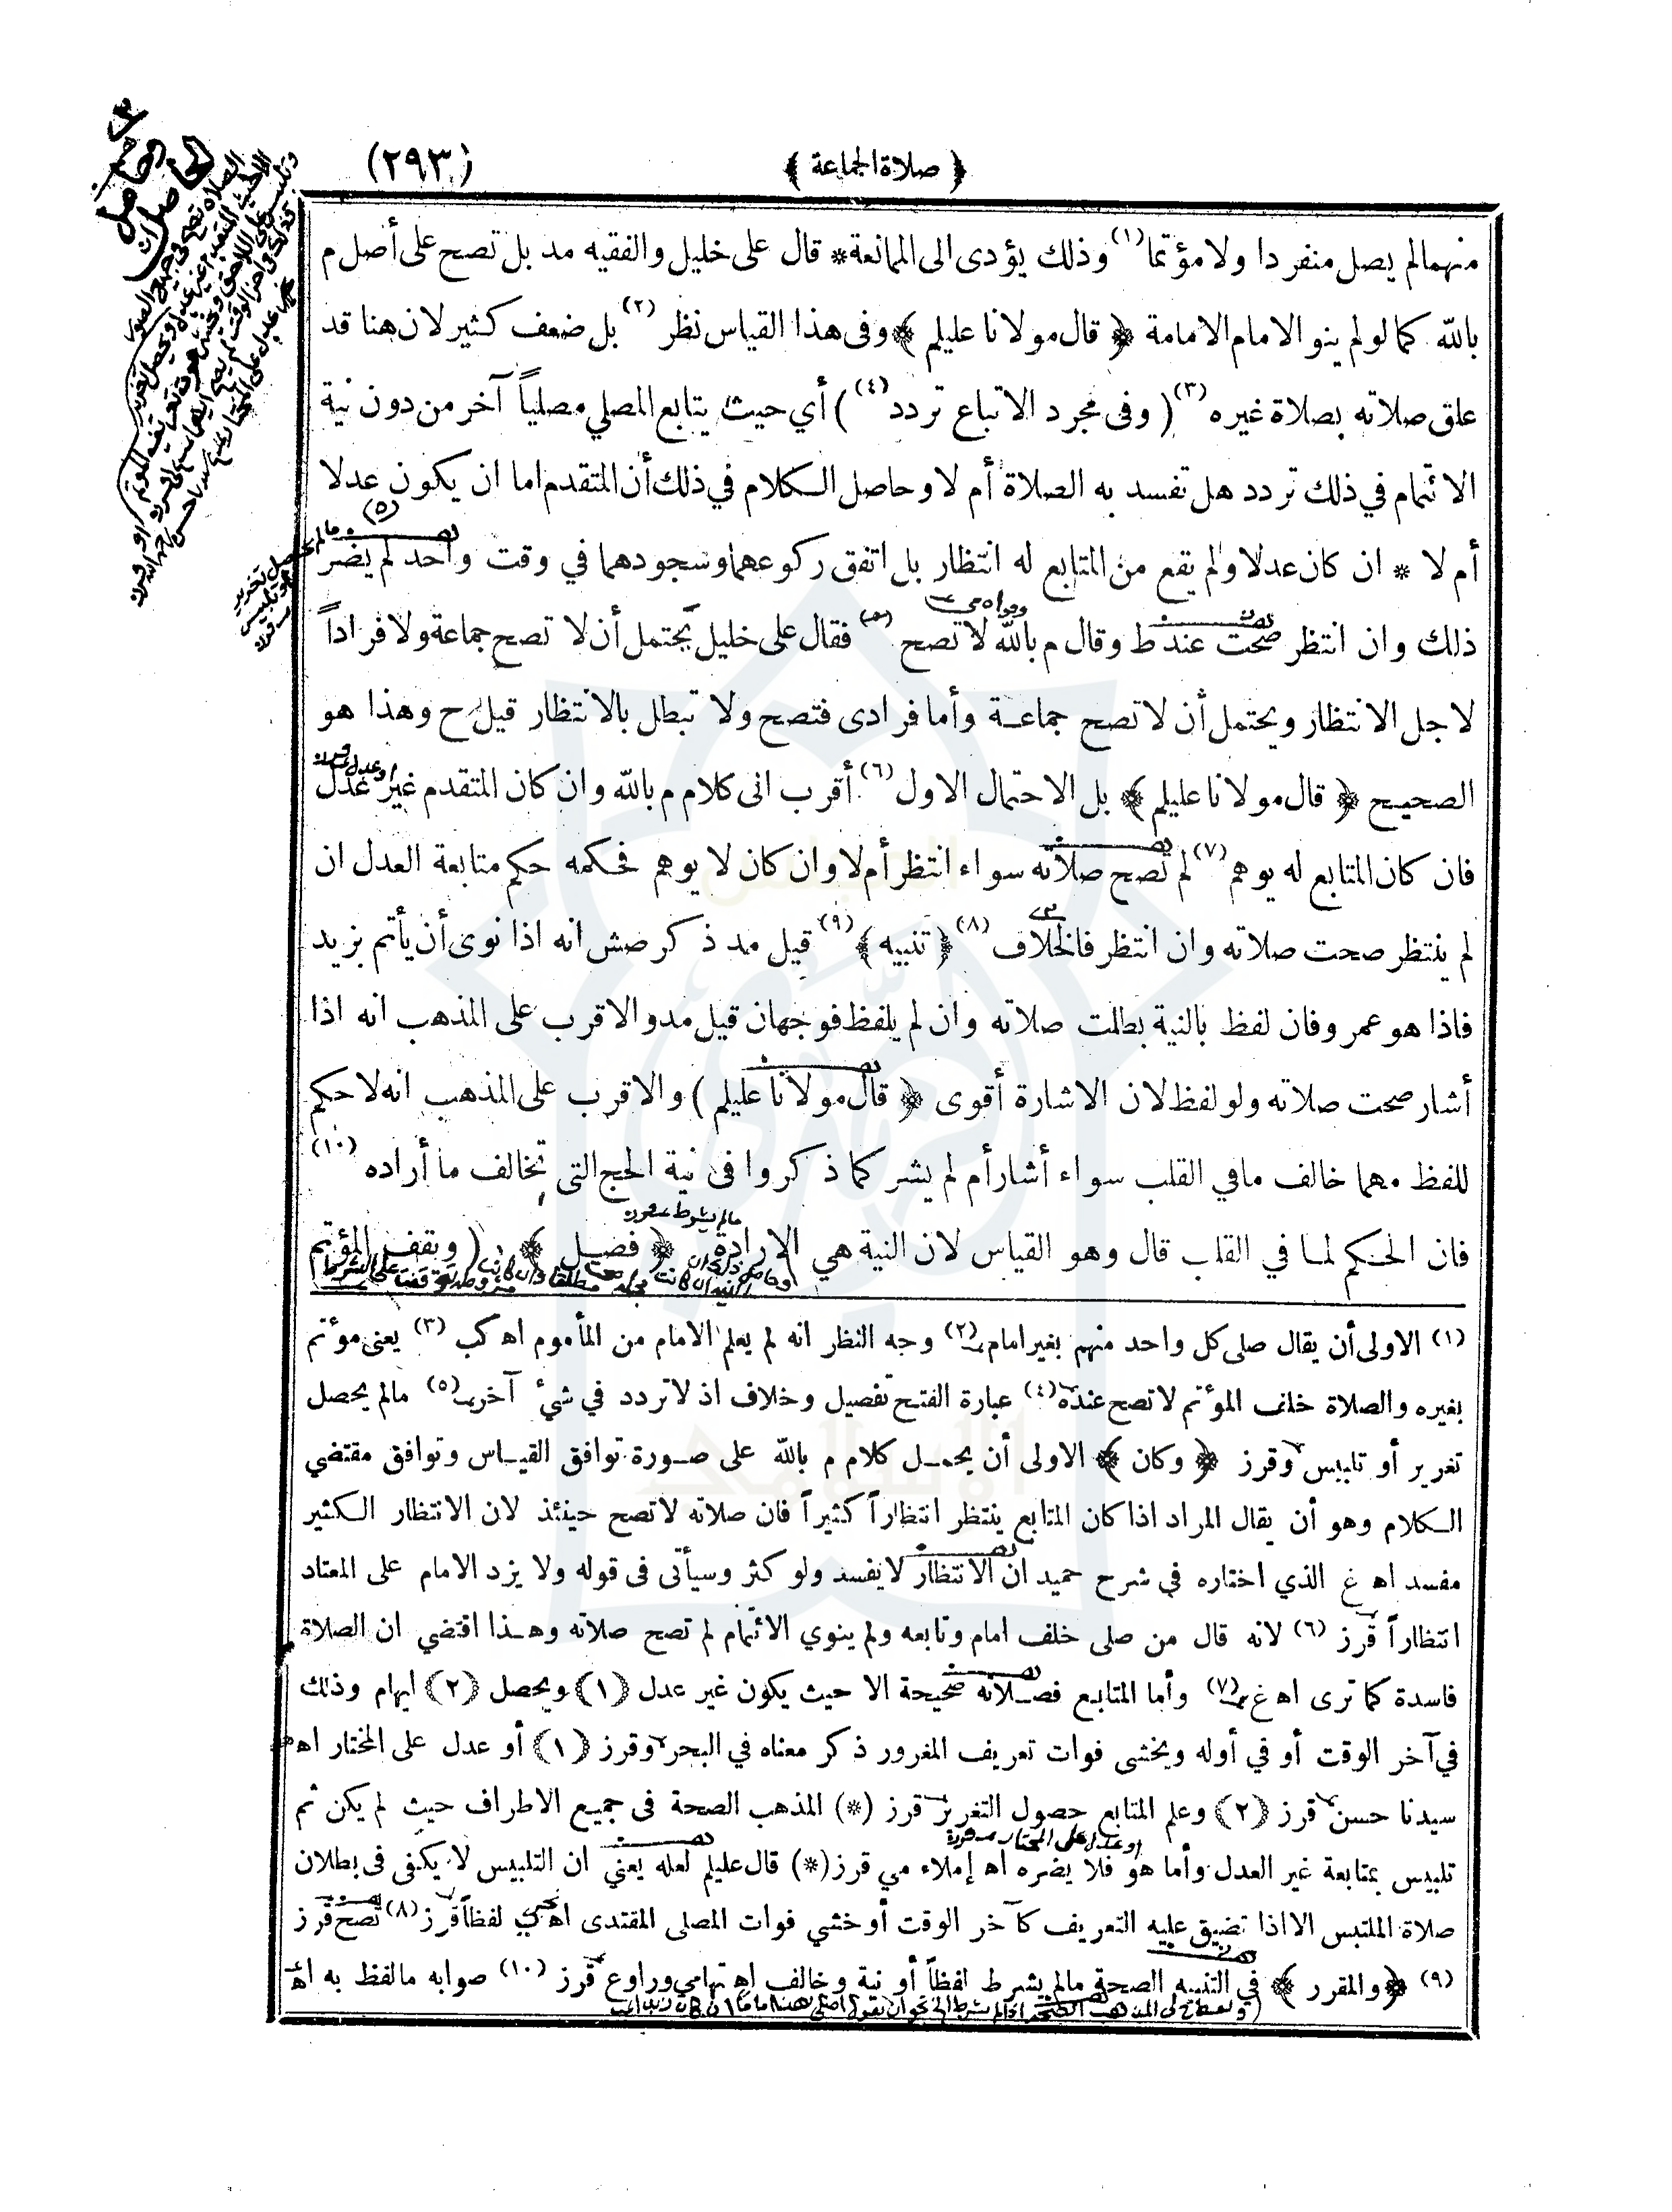 ﴿ صلاة الجماعة ﴾
(٢٩٣)
منهما لم يصل منفردا ولا مؤتما (١) وذلك يؤدى الى الممانعة * قال على خليل والفقيه مد بل تصح على أصل م
بالله كما لو لم ينو الامام الامامة ﴿ قال مولانا عليلم ﴾ وفى هذا القياس نظر (٢) بل ضعف كثير لان هنا قد
علق صلاته بصلاة غيره (٣) ( وفى مجرد الاتباع تردد (٤) ) أي حيث يتابع المصلي مصلياً آخر من دون نية
الائتمام في ذلك تردد هل تفسد به الصلاة أم لا وحاصل الكلام في ذلك أن المتقدم اما ان يكون عدلا
أم لا * ان كان عدلا ولم يقع من المتابع له انتظار بل اتفق ركوعهما وسجودهما في وقت واحد لم يضر (٥)
ذلك وان انتظر صحت عند ط وقال م بالله لا تصح (٥) فقال على خليل يحتمل أن لا تصح جماعة ولا فراداً
لاجل الانتظار ويحتمل أن لا تصح جماعة وأما فرادى فتصح ولا تبطل بالانتظار قيل ح وهذا هو
الصحيح ﴿ قال مولانا عليلم ﴾ بل الاحتمال الاول (٦) أقرب الى كلام م بالله وان كان المتقدم غير عدل
فان كان المتابع له يوهم (٧) لم تصح صلاته سواء انتظر أم لا وان كان لا يوهم فحكمه حكم متابعة العدل ان
لم ينتظر صحت صلاته وان انتظر فالخلاف (٨) ﴿ تنبيه ﴾ (٩) قيل مد ذكر صش انه اذا نوى أن يأتم بزيد
فاذا هو عمرو فان لفظ بالنية بطلت صلاته وان لم يلفظ فوجهان قيل مد والاقرب على المذهب انه اذا
أشار صحت صلاته ولو لفظ لان الاشارة أقوى ﴿ قال مولانا عليلم ) والاقرب على المذهب انه لا حكم
للفظ مهما خالف مافي القلب سواء أشار أم لم يشر كما ذكروا فى نية الحج التى تخالف ما أراده (١٠)
فان الحكم لما في القلب قال وهو القياس لان النية هي الارادة ﴿ فصل ﴾ ( ويقف المؤتم
(١) الاولى أن يقال صلى كل واحد منهم بغير امام (٢) وجه النظر انه لم يعلم الامام من المأموم اه كب (٣) يعنى مؤتم
بغيره والصلاة خلف المؤتم لا تصح عنده (٤) عبارة الفتح تفصيل وخلاف اذ لا تردد في شئ آخر (٥) مالم يحصل
تغرير أو تلبيس وقرز ﴿ وكان ﴾ الاولى أن يحمل كلام م بالله على صورة توافق القياس وتوافق مقتضي
الكلام وهو أن يقال المراد اذا كان المتابع ينتظر انتظاراً كثيراً فان صلاته لا تصح حينئذ لان الانتظار الكثير
مفسد اه غ الذي اختاره في شرح حميد ان الانتظار لا يفسد ولو كثر وسيأتى فى قوله ولا يزد الامام على المعتاد
انتظاراً قرز (٦) لانه قال من صلى خلف امام وتابعه ولم ينوي الائتمام لم تصح صلاته وهذا اقتضي ان الصلاة
فاسدة كما ترى اه غ (٧) وأما المتابع فصلاته صحيحة الا حيث يكون غير عدل (١) ويحصل (٢) ايهام وذلك
في آخر الوقت أو في أوله ويخشى فوات تعريف المغرور ذكر معناه في البحر وقرز (١) أو عدل على المختار اه
سيدنا حسن قرز (٢) وعلم المتابع حصول التغرير قرز (*) المذهب الصحة فى جميع الاطراف حيث لم يكن ثم
أو عدل على المختار
تلبيس بمتابعة غير العدل وأما هو فلا يضره اه إملاء مي قرز (*) قال عليلم لعله يعني ان التلبيس لا يكفى فى بطلان
صلاة الملتبس الا اذا تضيق عليه التعريف كآخر الوقت أو خشي فوات المصلى المقتدى اه لفظاً قرز (٨) تصح قرز
(٩) ﴿ والمقرر ﴾ في التنبيه الصحة مالم يشرط لفظاً أو نية وخالف اه تهامي وراوع قرز (١٠) صوابه مالفظ به اه